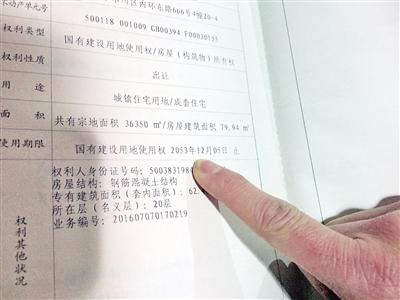 川区内环东路666号4幢20-4
不动产单元号 500118 001009 GB00394 F00030155
权利类型 国有建设用地使用权/房屋（构筑物）所有权
权利性质 出让
用途 城镇住宅用地/成套住宅
面积 共有宗地面积 36350 ㎡/房屋建筑面积 79.94 ㎡
使用期限 国有建设用地使用权 2053年12月05日 止
权利其他状况
权利人身份证号码：500383198
房屋结构：钢筋混凝土结构
专有建筑面积（套内面积）：62.
所在层（名义层）：20层
业务编号：201607070170219